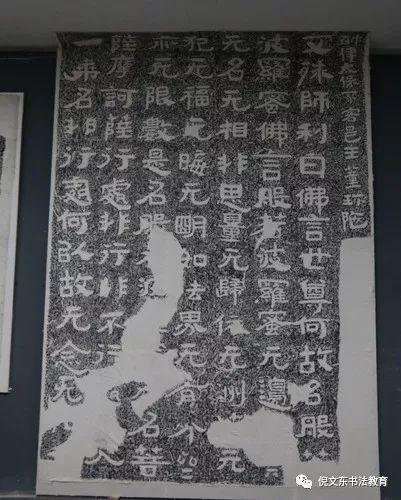 斛律太保家客邑主董珍陀
文殊師利白佛言世尊何故名般
波羅蜜佛言般若波羅蜜无邊
无名无相非思量无歸依无洲无
犯无福无晦无明如法界无有分
亦无限數是名般若名菩
薩摩訶薩行處非行非不行入
一乘名非行處何以故无念无
倪文东书法教育